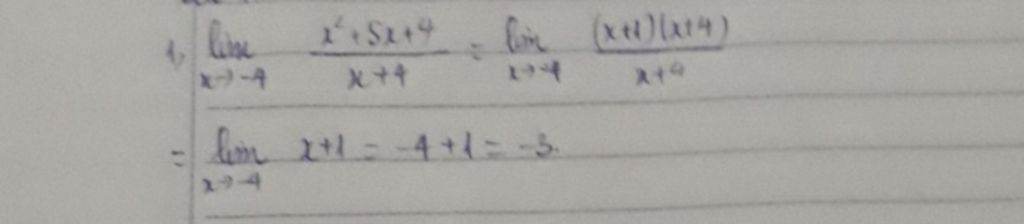 1, lim x→-4 (x²+5x+4)/(x+4) = lim x→-4 ((x+1)(x+4))/(x+4)
= lim x→-4 x+1 = -4+1 = -3.